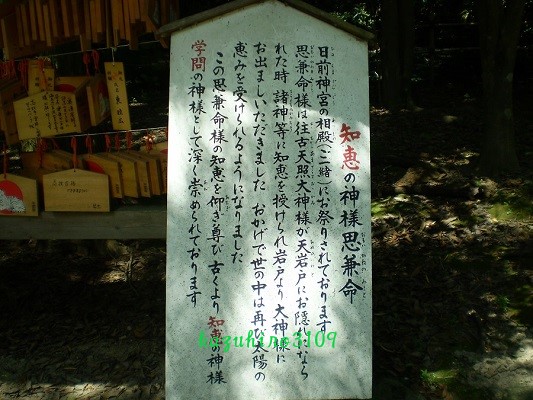 知恵の神様思兼命
日前神宮の相殿(ご一緒)にお祭りされております
思兼命様は往古天照大神様が天岩戸にお隠れになら
れた時 諸神等に知恵を授けられ岩戸より大神様に
お出ましいただきました おかげで世の中は再び太陽の
恵みを受けられるようになりました
この思兼命様の知恵を仰ぎ尊び 古くより 知恵の神様
学問の神様として深く崇められております
kazuhino3109